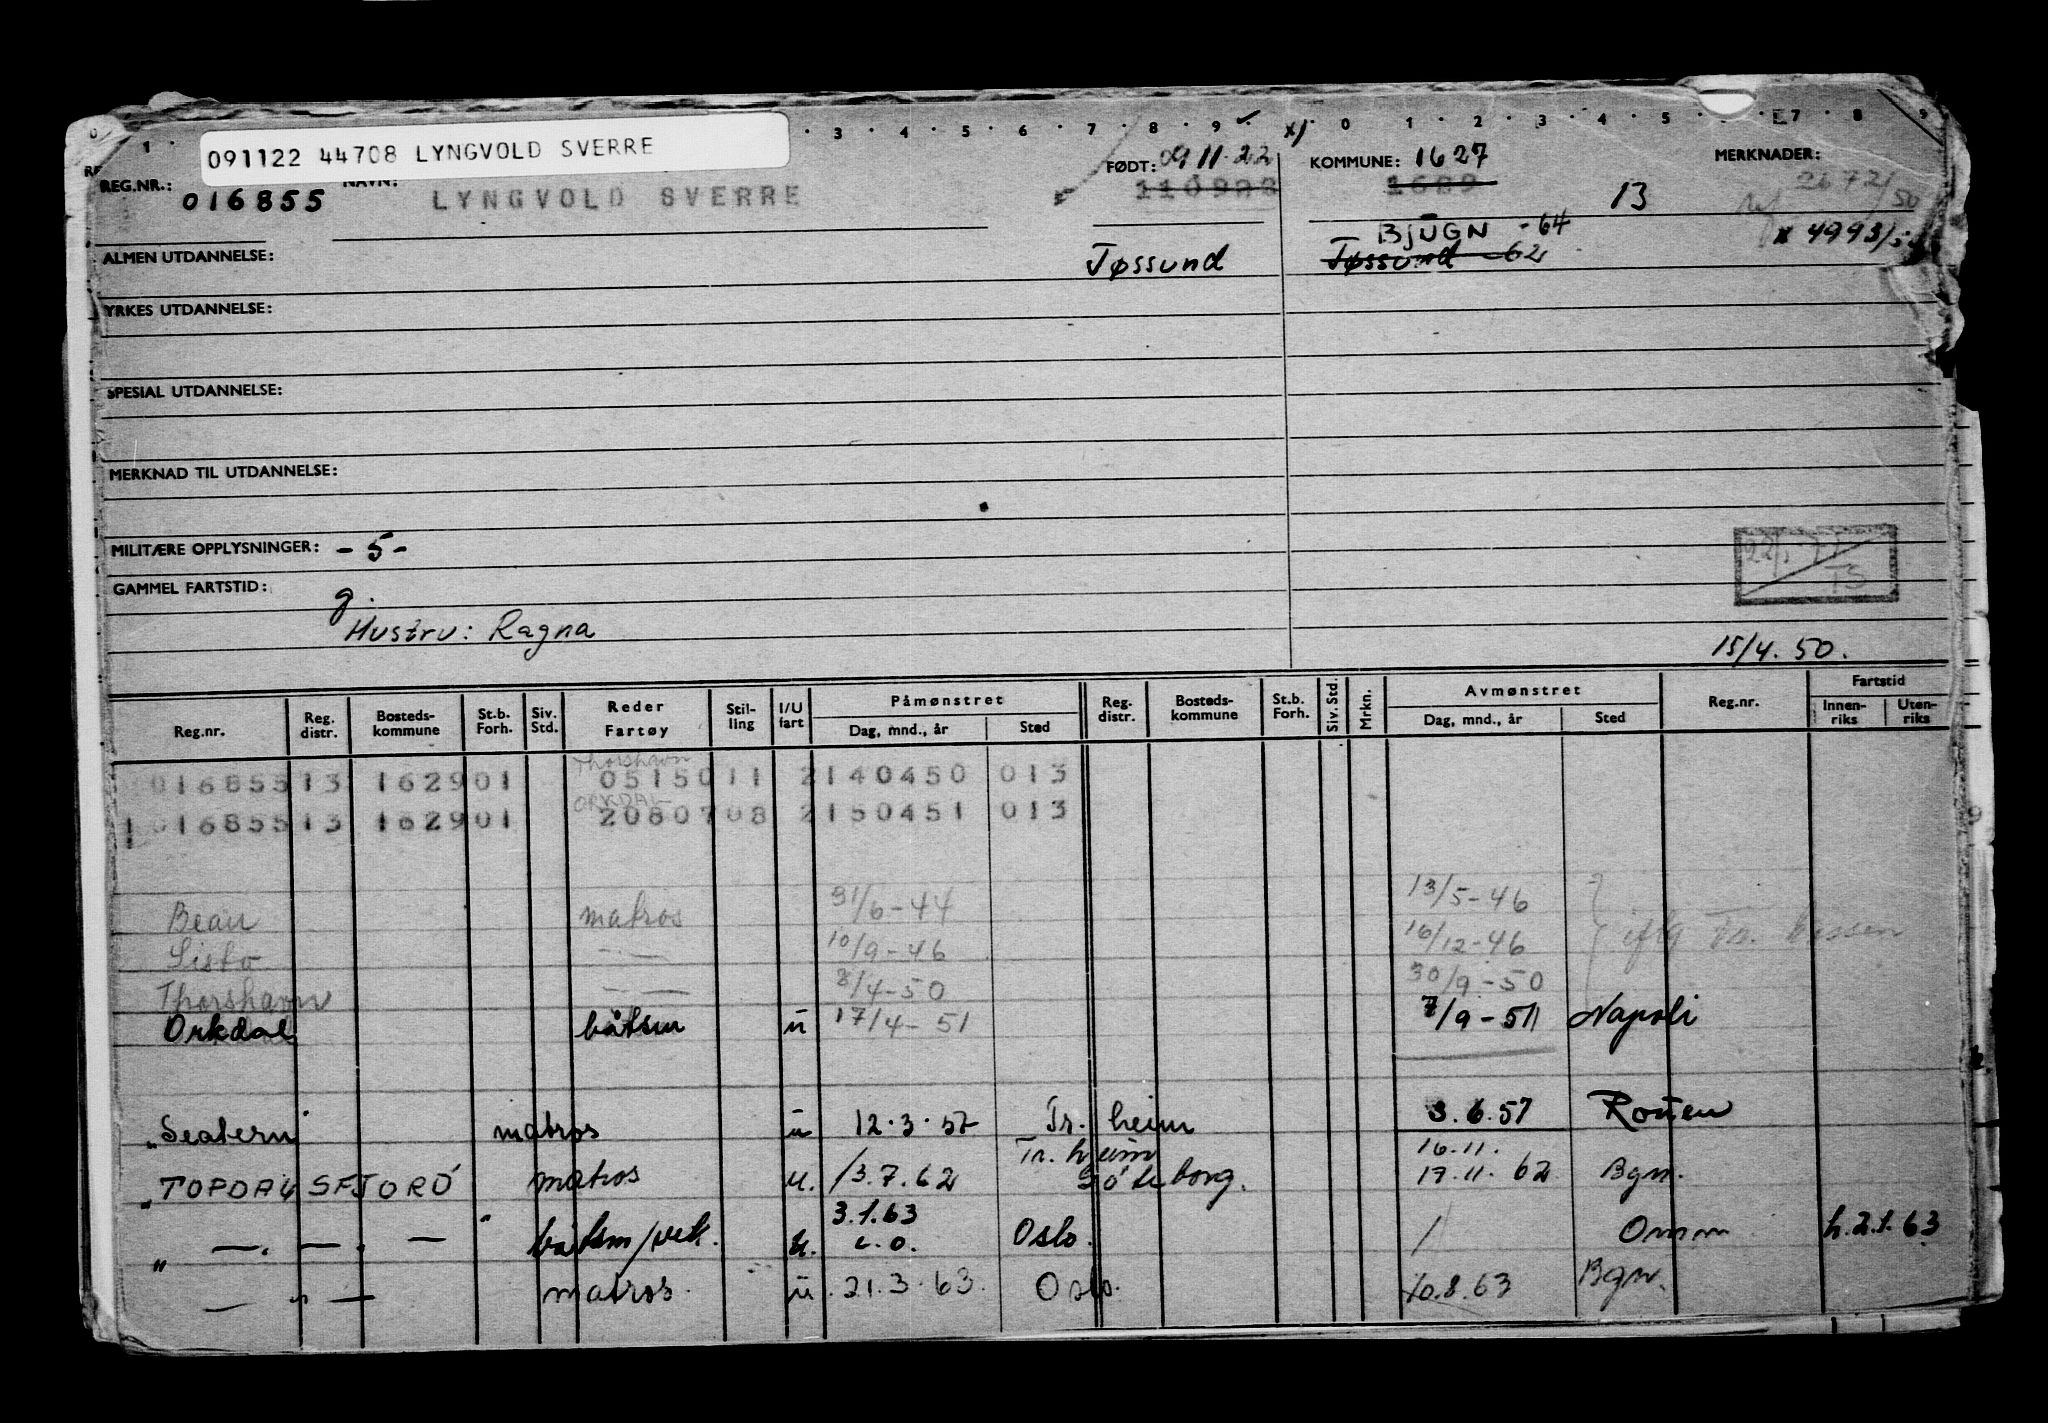 0 1 3 4 5 6 7 8 9 x) 0 1 2 3 4 5 7 8 9
091122 44708 LYNGVOLD SVERRE
REG.NR.: 016855 NAVN: LYNGVOLD SVERRE FØDT: 09.11.22 110922 KOMMUNE: 1627 1689 13 MERKNADER: 2672/50
x 4993/
BJUGN -64
ALMEN UTDANNELSE: Tøssund Tøssund -62
YRKES UTDANNELSE:
SPESIAL UTDANNELSE:
MERKNAD TIL UTDANNELSE:
MILITÆRE OPPLYSNINGER: - 5 -
GAMMEL FARTSTID: g.
TS
Hustru: Ragna
15/4. 50.
Reg.nr. Reg. distr. Bosteds-kommune St.b. Forh. Siv. Std. Reder Fartøy Stil-ling I/U fart Påmønstret Dag, mnd., år Sted Reg. distr. Bosteds-kommune St.b. Forh. Siv. Std. Mrkn. Avmønstret Dag, mnd., år Sted Reg.nr. Fartstid Innen-riks Uten-riks
Thorshavn
016855 13 1629 01 0515011 2 140450 013
ORKDAL
1 016855 13 1629 01 2080708 2 150451 013
Beau matros 31/6-44 13/5-46
Listo — — 10/9-46 16/12-46 iflg
Thorshavn — — 8/4-50 30/9-50
Orkdal båtsm u 17/4-51 7/9-51 Napoli
" Seatern matros u 12.3.57 Tr.heim 3.6.57 Rouen
Tr.heim 16.11.
" TOPDALSFJORD matros u. 13.7.62 Göteborg. 17.11.62 Bgn.
3.1.63
" —. —. — " båtsm/ u. c.o. Oslo. / Omm h.2.1.63
— " — matros. u. 21.3.63. Oslo. 10.8.63 Bgn.